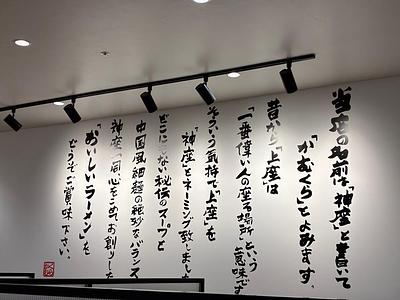 当店の名前は「神座」と書いて
「かむくら」とよみます。
昔から「上座」は
「一番偉い人の座る場所」という
意味です
そういう気持で「上座」を
「神座」とネーミング致しました
どこにもない秘伝のスープと
中国風細麺の絶妙なバランス
神座一同心をこめてお創りした
「おいしいラーメン」を
どうぞご賞味下さい。